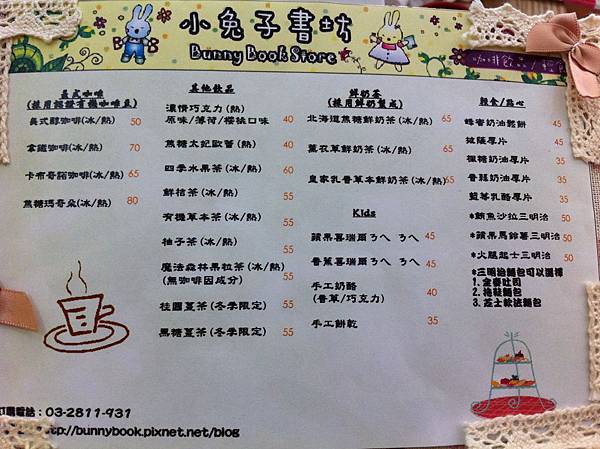 小兔子書坊
Bunny Book Store
咖啡飲品
義式咖啡
(採用認證有機咖啡豆)
美式醇咖啡(冰/熱) 50
拿鐵咖啡(冰/熱) 70
卡布奇諾咖啡(冰/熱) 65
焦糖瑪奇朵(冰/熱) 80
其他飲品
濃情巧克力(熱)
原味/薄荷/櫻桃口味 40
焦糖太妃歐蕾(熱) 40
四季水果茶(冰/熱) 60
鮮桔茶(冰/熱) 55
有機草本茶(冰/熱) 55
柚子茶(冰/熱) 55
魔法森林果粒茶(冰/熱)
(無咖啡因成分) 55
桂圓薑茶(冬季限定) 55
黑糖薑茶(冬季限定) 55
鮮奶茶
(採用鮮奶製成)
北海道焦糖鮮奶茶(冰/熱) 65
薰衣草鮮奶茶(冰/熱) 65
皇家乳香草本鮮奶茶(冰/熱) 65
Kids
蘋果喜瑞爾ㄋㄟ ㄋㄟ 45
香蕉喜瑞爾ㄋㄟ ㄋㄟ 45
手工奶酪
(香草/巧克力) 40
手工餅乾 35
輕食/點心
蜂蜜奶油鬆餅 45
披薩厚片 45
楓糖奶油厚片 35
香蒜奶油厚片 35
藍莓乳酪厚片 35
*鮪魚沙拉三明治 50
*蘋果馬鈴薯三明治 50
*火腿起士三明治 50
*三明治麵包可以選擇
1.全麥吐司
2.格紋麵包
3.芝士軟法麵包
訂購電話：03-2811-931
http://bunnybook.pixnet.net/blog